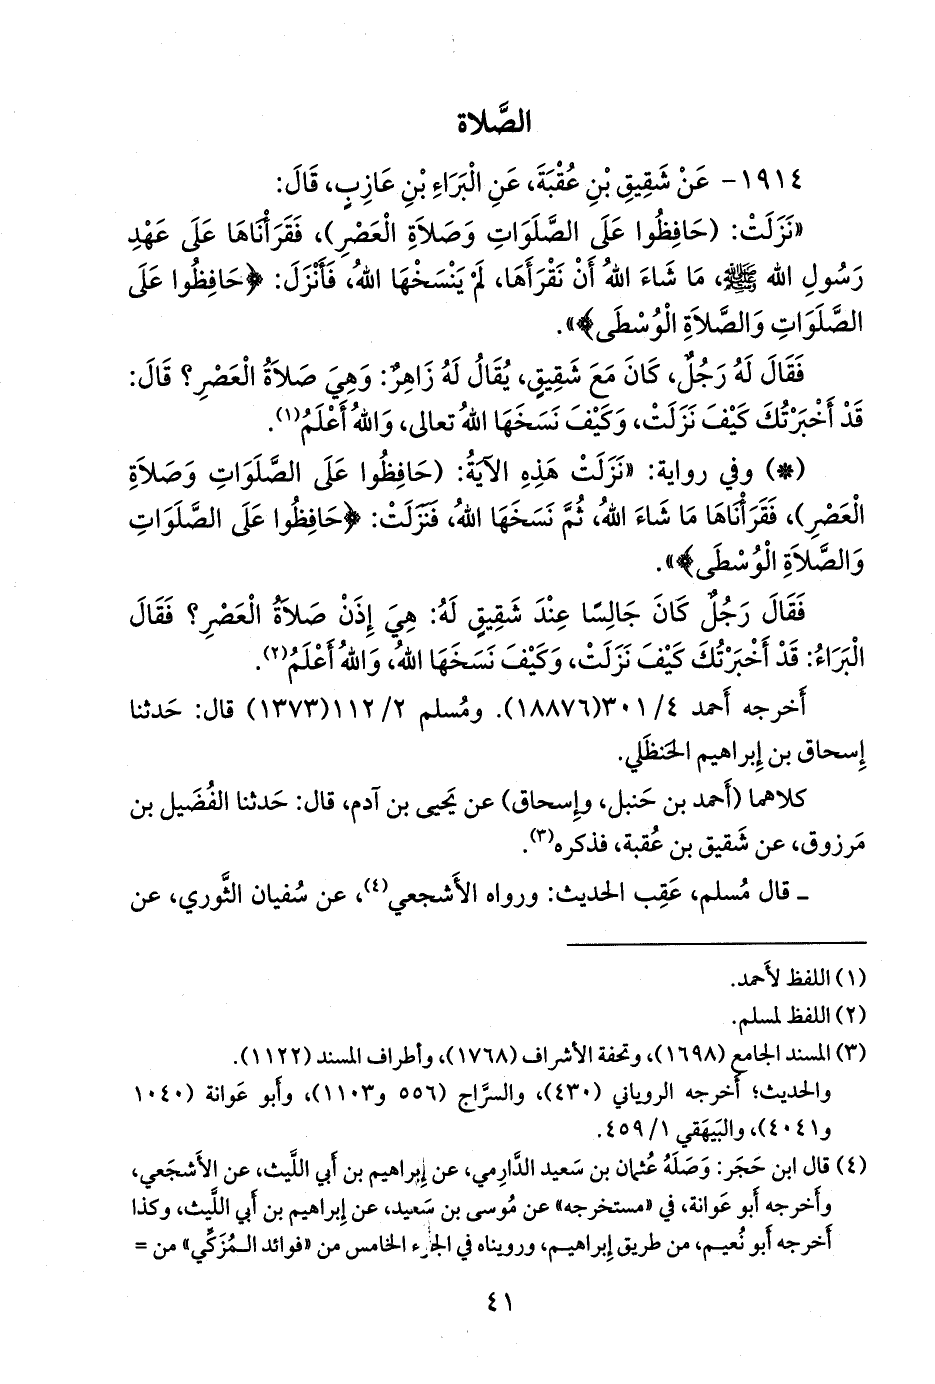 الصَّلَاة
١٩١٤- عَنْ شَقِيقِ بْنِ عُقْبَةَ، عَنِ الْبَرَاءِ بْنِ عَازِبٍ، قَالَ:
«نَزَلَتْ: (حَافِظُوا عَلَى الصَّلَوَاتِ وَصَلَاةِ الْعَصْرِ)، فَقَرَأْنَاهَا عَلَى عَهْدِ
رَسُولِ الله ﷺ، مَا شَاءَ اللهُ أَنْ نَقْرَأَهَا، لَمْ يَنْسَخْهَا اللهُ، فَأَنْزَلَ: ﴿حَافِظُوا عَلَى
الصَّلَوَاتِ وَالصَّلَاةِ الْوُسْطَى﴾».
فَقَالَ لَهُ رَجُلٌ، كَانَ مَعَ شَقِيقٍ، يُقَالُ لَهُ زَاهِرٌ: وَهِيَ صَلَاةُ الْعَصْرِ؟ قَالَ:
قَدْ أَخْبَرْتُكَ كَيْفَ نَزَلَتْ، وَكَيْفَ نَسَخَهَا اللهُ تعالى، وَاللهُ أَعْلَمُ(١).
(*) وفي رواية: «نَزَلَتْ هَذِهِ الآيَةُ: (حَافِظُوا عَلَى الصَّلَوَاتِ وَصَلَاةِ
الْعَصْرِ)، فَقَرَأْنَاهَا مَا شَاءَ اللهُ، ثُمَّ نَسَخَهَا اللهُ، فَنَزَلَتْ: ﴿حَافِظُوا عَلَى الصَّلَوَاتِ
وَالصَّلَاةِ الْوُسْطَى﴾».
فَقَالَ رَجُلٌ كَانَ جَالِسًا عِنْدَ شَقِيقٍ لَهُ: هِيَ إِذَنْ صَلَاةُ الْعَصْرِ؟ فَقَالَ
الْبَرَاءُ: قَدْ أَخْبَرْتُكَ كَيْفَ نَزَلَتْ، وَكَيْفَ نَسَخَهَا اللهُ، وَاللهُ أَعْلَمُ(٢).
أَخرجه أَحمد ٤/ ٣٠١(١٨٨٧٦). ومُسلم ٢/ ١١٢(١٣٧٣) قال: حَدثنا
إِسحاق بن إِبراهيم الحَنظَلي.
كلاهما (أَحمد بن حَنبل، وإِسحاق) عن يَحيى بن آدم، قال: حَدثنا الفُضَيل بن
مَرزوق، عن شَقيق بن عُقبة، فذكره(٣).
ـ قال مُسلم، عَقِب الحديث: ورواه الأَشجعي(٤)، عن سُفيان الثَّوري، عن
(١) اللفظ لأَحمد.
(٢) اللفظ لمسلم.
(٣) المسند الجامع (١٦٩٨)، وتحفة الأشراف (١٧٦٨)، وأطراف المسند (١١٢٢).
والحديث؛ أخرجه الروياني (٤٣٠)، والسرَّاج (٥٥٦ و١١٠٣)، وأبو عَوانة (١٠٤٠
و٤٠٤١)، والبَيهَقي ١/ ٤٥٩.
(٤) قال ابن حَجَر: وَصَلَهُ عُثمان بن سَعيد الدَّارِمي، عن إبراهيم بن أبي اللَّيث، عن الأَشجَعي،
وأخرجه أبو عَوانة، في «مستخرجه» عن مُوسى بن سَعيد، عن إبراهيم بن أبي اللَّيث، وكذا
أخرجه أبو نُعيم، من طريق إبراهيم، ورويناه في الجزء الخامس من «فوائد المُزَكِّي» من =
٤١